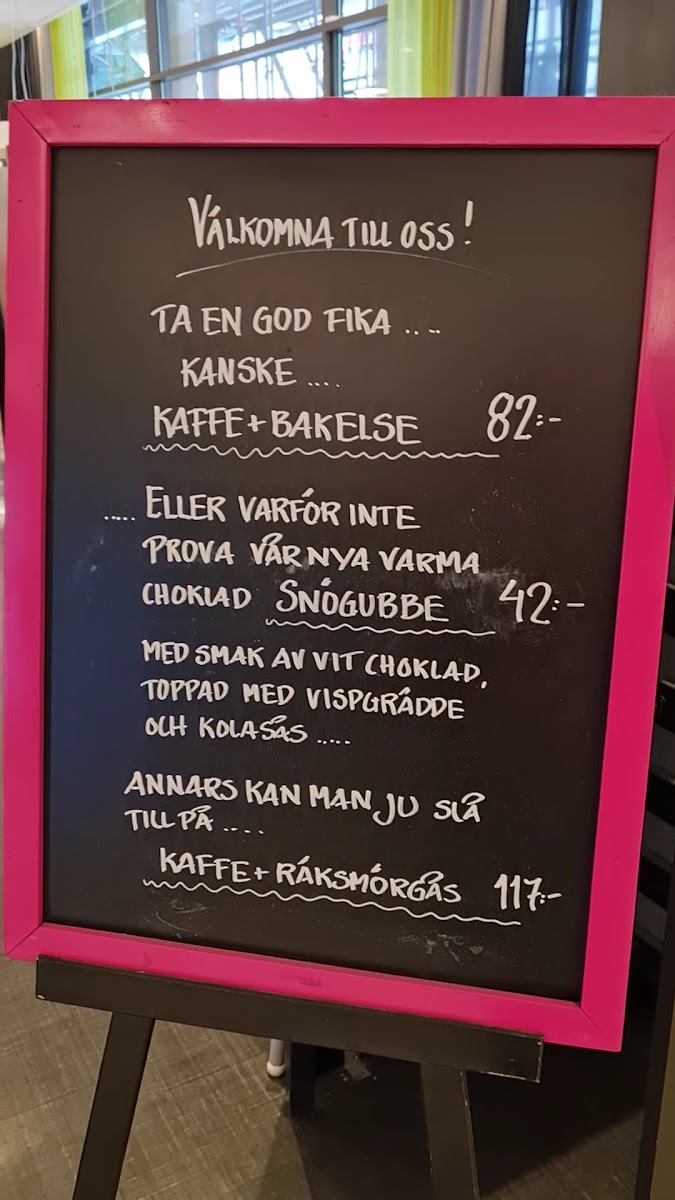 VÄLKOMNA TILL OSS!
TA EN GOD FIKA ....
KANSKE ....
KAFFE + BAKELSE 82:-
..... ELLER VARFÖR INTE
PROVA VÅR NYA VARMA
CHOKLAD SNÖGUBBE 42:-
MED SMAK AV VIT CHOKLAD,
TOPPAD MED VISPGRÄDDE
OCH KOLASÅS .....
ANNARS KAN MAN JU SLÅ
TILL PÅ ....
KAFFE + RÄKSMÖRGÅS 117:-